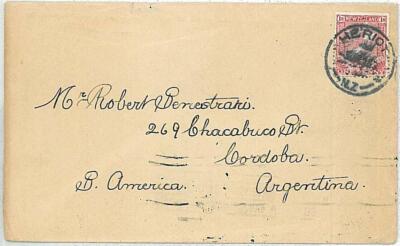 NEW ZEALAND
HERIOT
N.Z
Mr. Robert Penestrari.
269 Chacabuco St.
Cordoba.
S. America. Argentina.